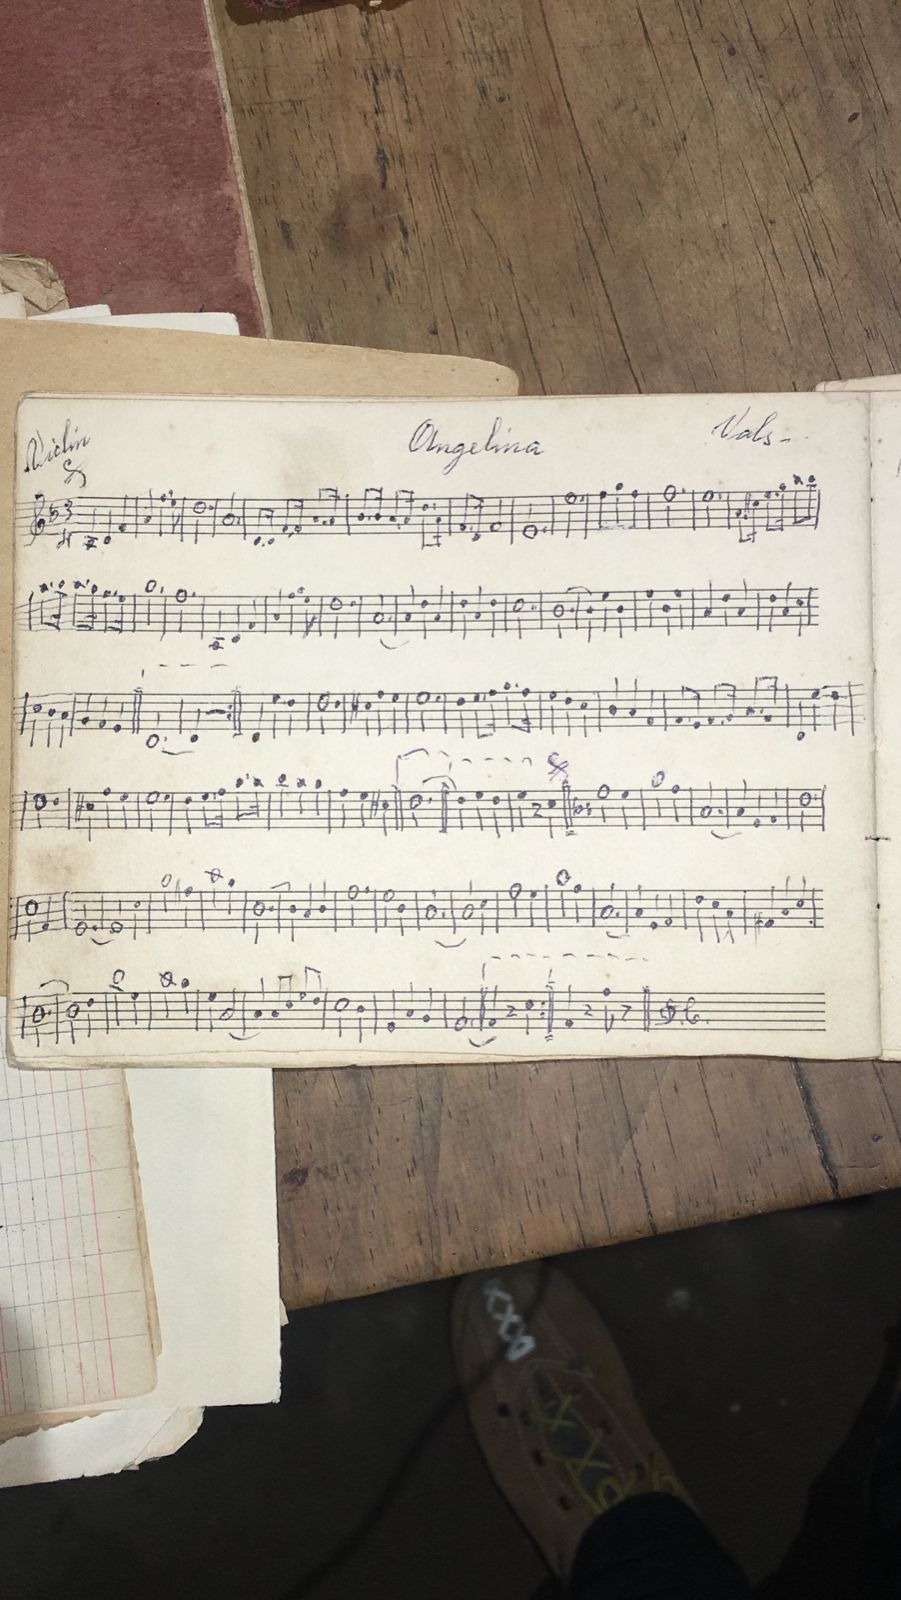 Violin Angelina Vals-
D.C.